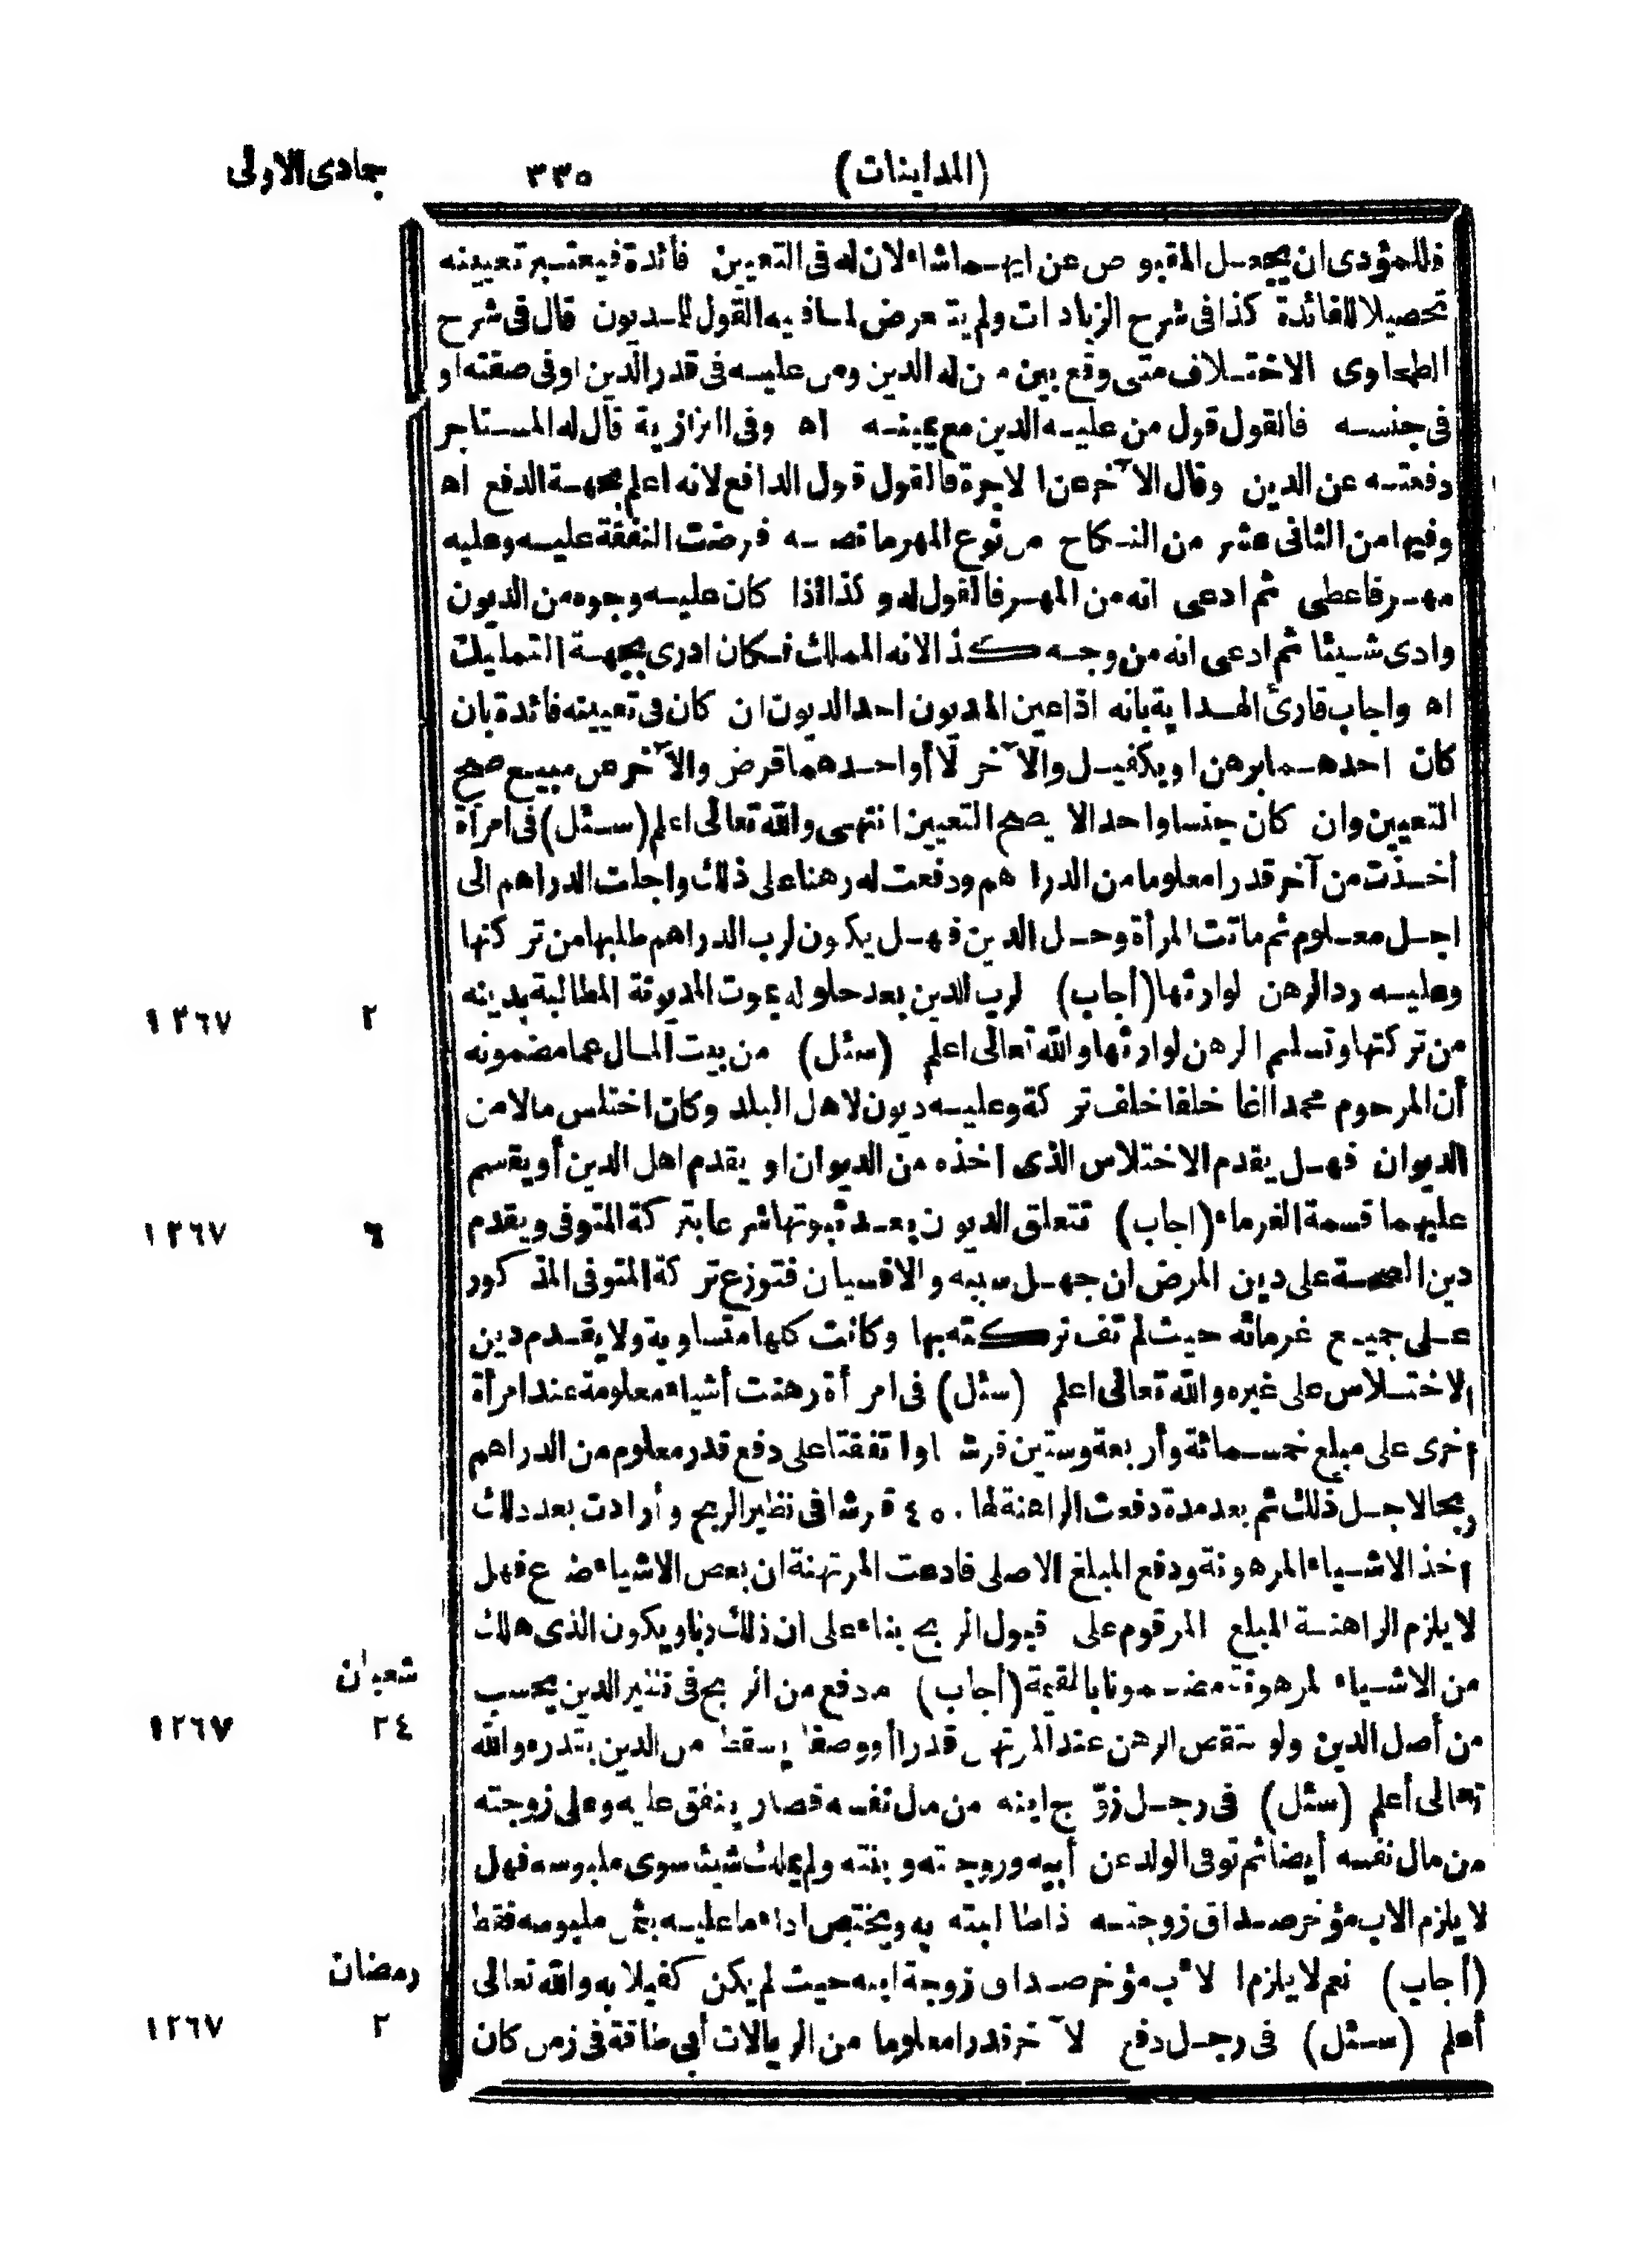 (المداينات) ٣٣٥ جمادى الاولى
فللمؤدى ان يجعل المقبوض عن ايهما شاء لان له فى التعيين فائدة فيعتبر تعيينه
تحصيلا للفائدة كذا فى شرح الزيادات ولم يتعرض لما فيه القول للمديون قال فى شرح
الطحاوى الاختلاف متى وقع بين من له الدين ومن عليه فى قدر الدين او فى صفته او
فى جنسه فالقول قول من عليه الدين مع يمينه اه وفى البزازية قال له المستاجر
دفعته عن الدين وقال الآخر عن الاجرة فالقول قول الدافع لانه اعلم بجهة الدفع اه
وفيها من الثانى عشر من النكاح من نوع المهر ما نصه فرضت النفقة عليه وعليه
مهر فاعطى ثم ادعى انه من المهر فالقول له وكذا اذا كان عليه وجوه من الديون
وادى شيئا ثم ادعى انه من وجه كذا لانه المملك فكان ادرى بجهة التمليك
اه واجاب قارئ الهداية بانه اذا عين المديون احد الديون ان كان فى تعيينه فائدة بان
كان احدهما برهن او بكفيل والآخر لا أو احدهما قرض والآخر من مبيع صح
التعيين وان كان جنسا واحدا لا يصح التعيين انتهى والله تعالى اعلم (سئل) فى امرأة
أخذت من آخر قدرا معلوما من الدراهم ودفعت له رهنا على ذلك واجلت الدراهم الى
اجل معلوم ثم ماتت المرأة وحل الدين فهل يكون لرب الدراهم طلبها من تركتها
وعليه رد الرهن لوارثها (أجاب) لرب الدين بعد حلوله بموت المديونة المطالبة بدينه ٢ ١٢٦٧
من تركتها وتسليم الرهن لوارثها والله تعالى اعلم (سئل) من بيت المال عما مضمونه
أن المرحوم محمد اغا خلفا خلف تركة وعليه ديون لاهل البلد وكان اختلس مالا من
الديوان فهل يقدم الاختلاس الذى اخذه من الديوان او يقدم اهل الدين أو يقسم
عليهما قسمة الغرماء (اجاب) تتعلق الديون بعد ثبوتها شرعا بتركة المتوفى ويقدم ٦ ١٢٦٧
دين الصحة على دين المرض ان جهل سببه والا فسيان فتوزع تركة المتوفى المذكور
على جميع غرمائه حيث لم تف تركته بها وكانت كلها متساوية ولا يقدم دين
الاختلاس على غيره والله تعالى اعلم (سئل) فى امرأة رهنت أشياء معلومة عند امرأة
اخرى على مبلغ خمسمائة وأربعة وستين قرشا واتفقتا على دفع قدر معلوم من الدراهم
ربحا لاجل ذلك ثم بعد مدة دفعت الراهنة لها ٤٥٠ قرشا فى نظير الربح وأرادت بعد ذلك
اخذ الاشياء المرهونة ودفع المبلغ الاصلى فادعت المرتهنة ان بعض الاشياء ضاع فهل
لا يلزم الراهنة المبلغ المرقوم على قبول الربح بناء على ان ذلك ربا ويكون الذى هلك
من الاشياء المرهونة مضمونا بالقيمة (أجاب) ما دفع من الربح فى نظير الدين يحسب شعبان
من أصل الدين ولو نقص الرهن عند المرتهن قدرا أو وصفا يسقط من الدين بقدره والله ٢٤ ١٢٦٧
تعالى أعلم (سئل) فى رجل زوّج ابنه من مال نفسه فصار ينفق عليه وعلى زوجته
من مال نفسه أيضا ثم توفى الولد عن أبيه وزوجته وبنته ولم يملك شيئا سوى ملبوسه فهل
لا يلزم الاب مؤخر صداق زوجته اذا طالبته به ويختص اداء ما عليه بثمن ملبوسه فقط
(أجاب) نعم لا يلزم الاب مؤخر صداق زوجة ابنه حيث لم يكن كفيلا به والله تعالى رمضان
أعلم (سئل) فى رجل دفع لآخر قدرا معلوما من الريالات أبى طاقة فى زمن كان ٢ ١٢٦٧